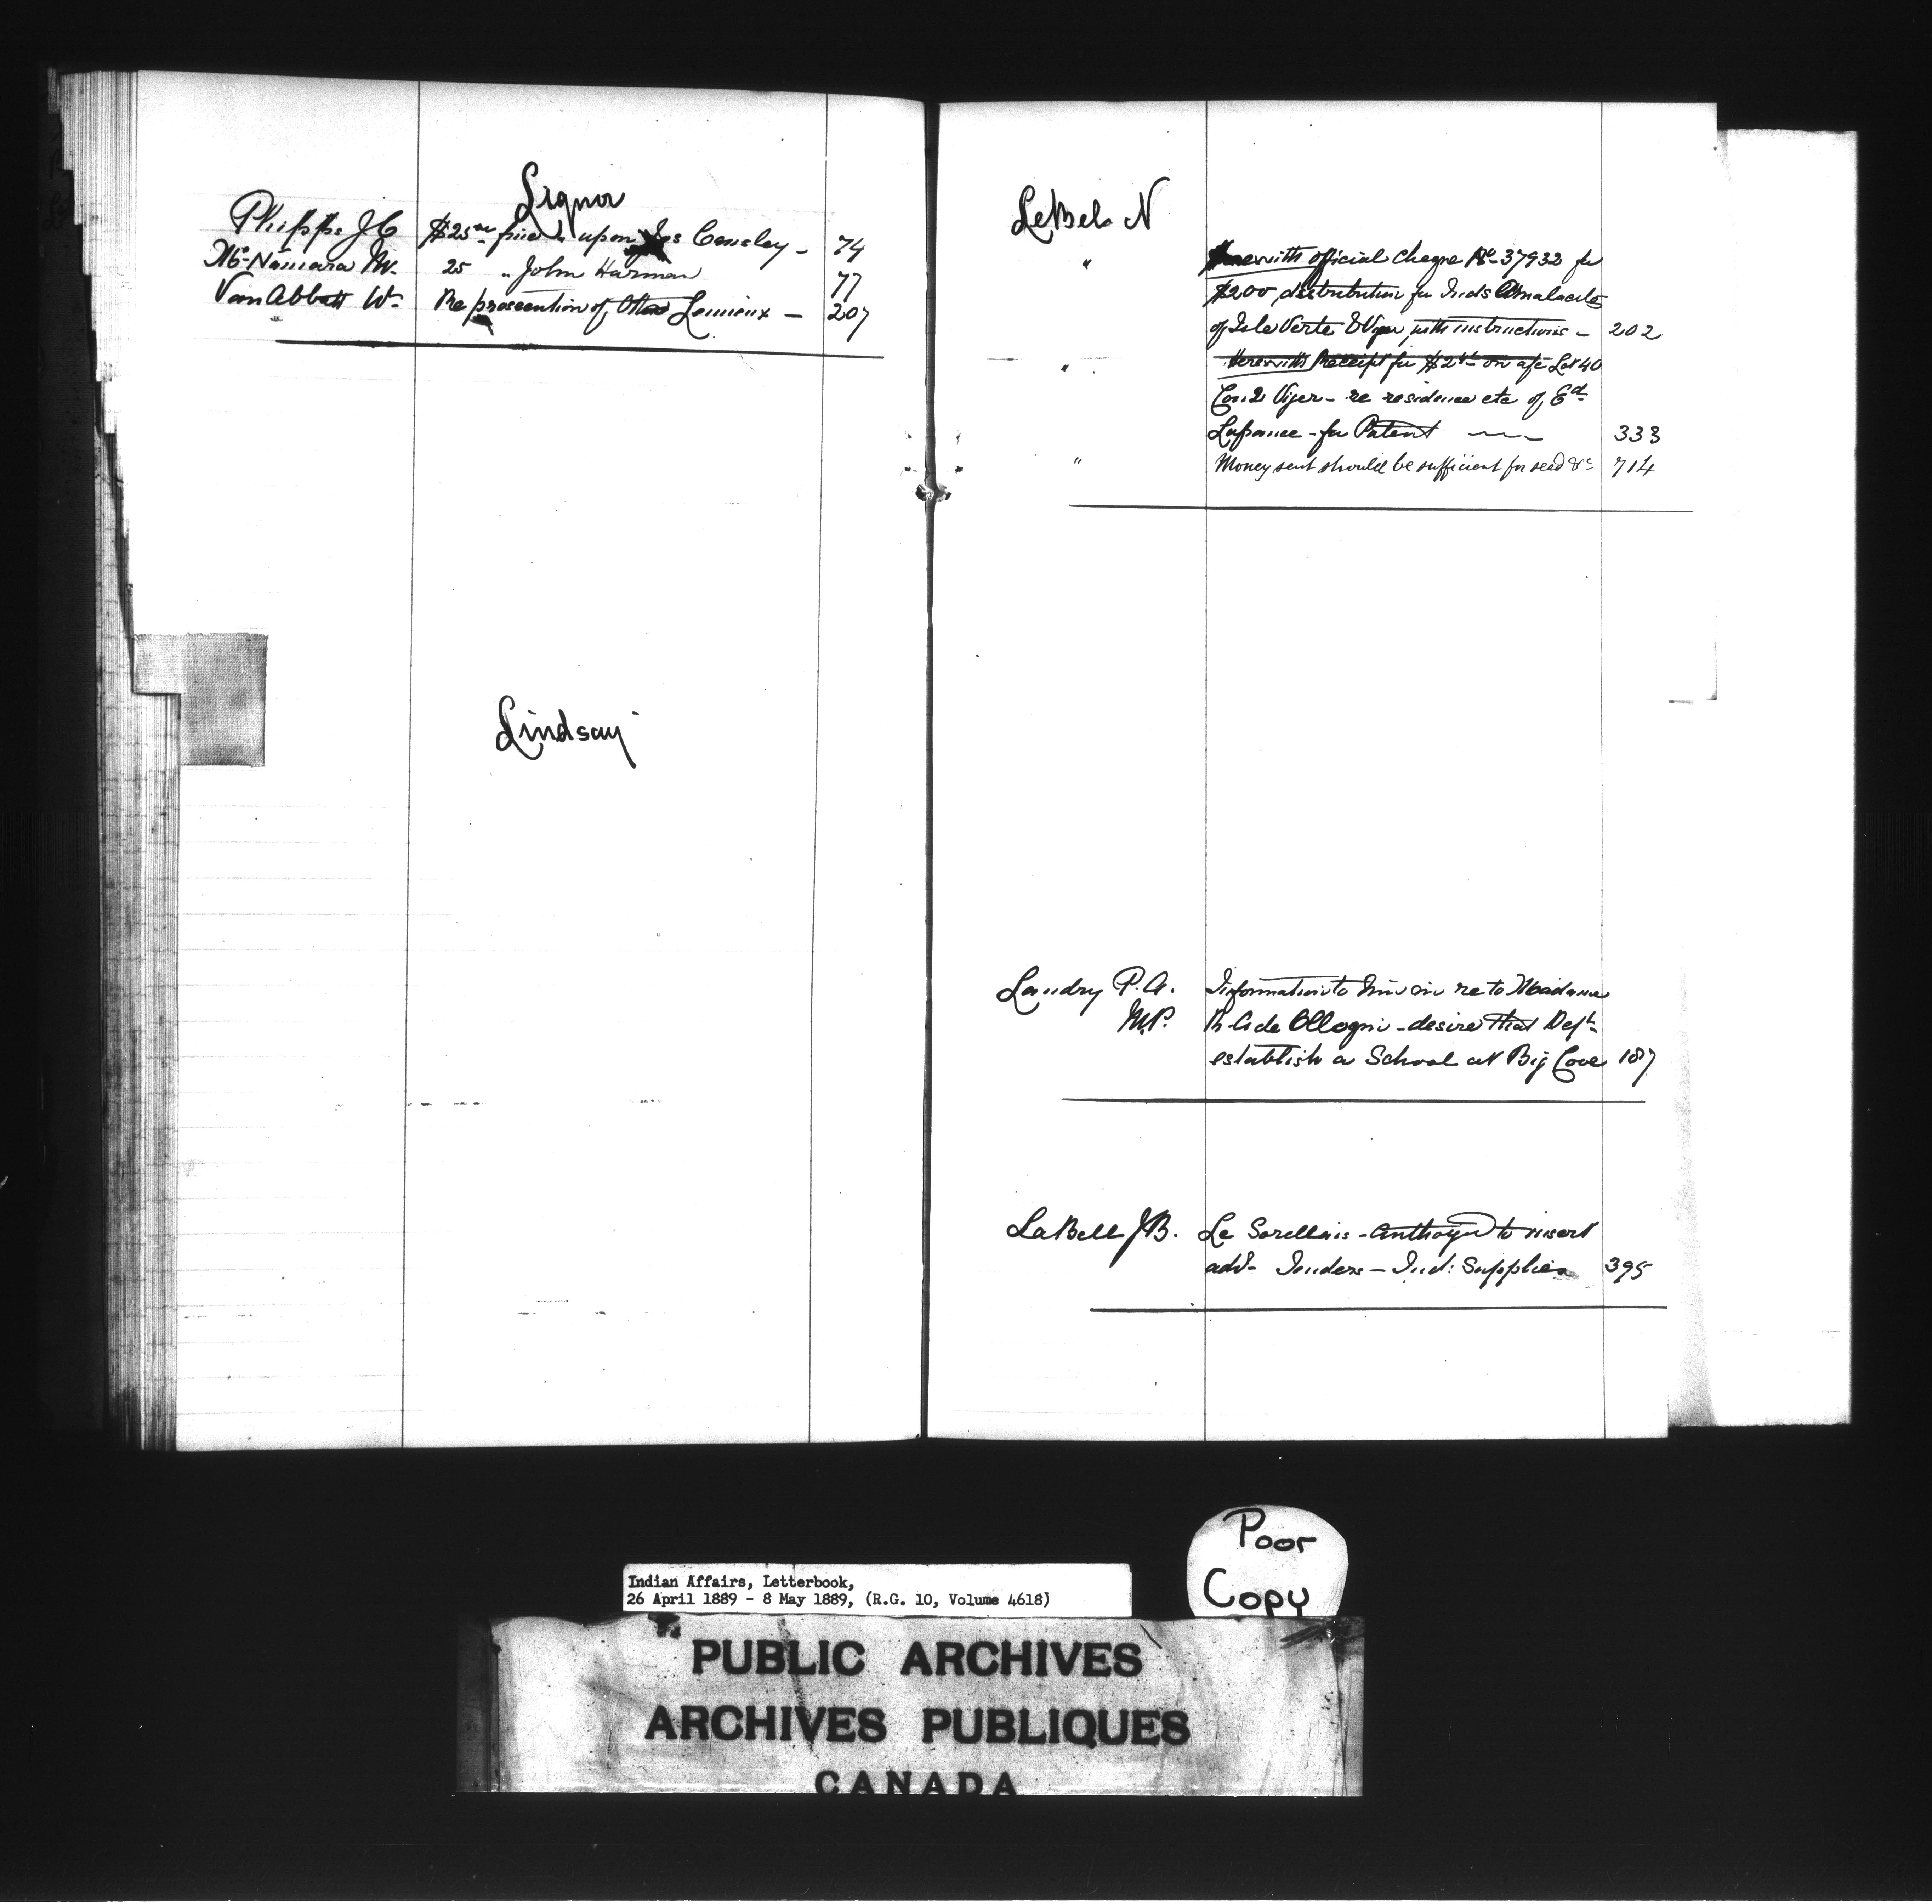 Liquor
Phipps J C $25.00 fine upon Jos Consley - 74
McNamara M. 25 " John Harman 77
Van Abbott Wm Re prosecution of Lemieux - 207
Lindsay
LeBel N
" Herewith official cheque No 37933 for
$200, distribution for Inds Amalacites
of Isle Verte & Viger, with instructions - 202
" Herewith Receipt for $2 on a/c Lot 40
Con 2 Viger - re residence etc of Ed.
- for Patent 333
" Money sent should be sufficient for seed &c 714
Landry P. A. Information to him in re to Madame
M.P. - desire that Dept.
establish a School at Big Cove 187
LaBell J B. Le Sorellois - Authority to insert
advt - Tenders - Ind: Supplies 395
Poor
Copy
Indian Affairs, Letterbook,
26 April 1889 - 8 May 1889, (R.G. 10, Volume 4618)
PUBLIC ARCHIVES
ARCHIVES PUBLIQUES
CANADA